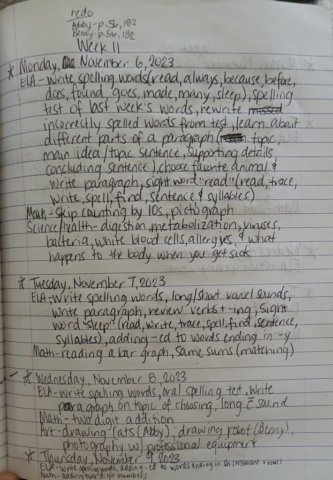 redo
Abby-p.56,182
Benny-p.56,182
Week 11
* Monday, November 6, 2023
ELA-Write spelling words (read, always, because, before,
does, found, goes, made, many, sleep), spelling
test of last week's words, rewrite missed
incorrectly spelled words from test, learn about
different parts of a paragraph (topic,
main idea/topic sentence, supporting details,
concluding sentence), choose favorite animal &
write paragraph, sight word "read" (read, trace,
write, spell, find, sentence & syllables)
Math-Skip counting by 10s, pictograph
Science/health-digestion, metabolization, viruses,
bacteria, white blood cells, allergies, & what
happens to the body when you get sick
* Tuesday, November 7, 2023
ELA-Write spelling words, long/short vowel sounds,
write paragraph, review verbs + -ing, sight
word "sleep" (read, write, trace, spell, find, sentence,
syllables), adding -ed to words ending in -y
Math-reading a bar graph, same sums (matching)
* Wednesday, November 8, 2023
ELA-write spelling words, oral spelling test, write
paragraph on topic of choosing, long e sound
Math-two digit addition
Art-drawing cats (Abby), drawing robot (Benny),
photography w/ professional equipment
* Thursday, November 9, 2023
ELA-write spelling words, adding -ed to words ending in consonant + vowel
Math-adding two digit numbers